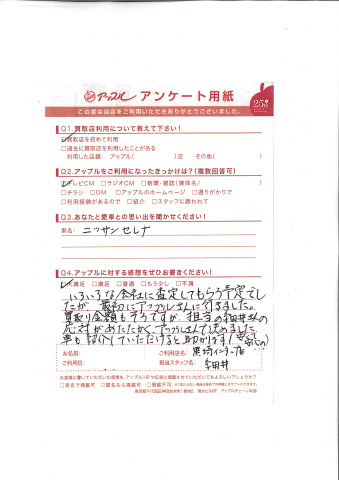 アップル アンケート用紙
25th
この度は当店をご利用いただきありがとうございました。
Q1.買取店利用について教えて下さい！
☑買取店を初めて利用
□過去に買取店を利用したことがある
利用した店舗： アップル（ ）店 その他（ ）
Q2.アップルをご利用になったきっかけは？（複数回答可）
☑テレビCM □ラジオCM □新聞・雑誌（媒体名/ ）
□チラシ □DM □アップルのホームページ □通りがかりで
□利用経験があるので □紹介 □スタッフに誘われて
Q3.あなたと愛車との思い出を聞かせください！
車名： ニッサンセレナ
Q4.アップルに対する感想をぜひお書きください！
☑満足 □満足 □普通 □もう少し □不満
いろいろな会社に査定してもらう予定でし
たが、最初にアップルさんに行きました。
買取り金額もそうですが、担当の 井さんの
応対があたたかく、アップルさんで決めました。
車も紹介していただけると助かります！
お名前： ご利用店名：
ご利用日： 担当スタッフ名：
お客様に書いていただいた感想が、アップルHPや広告に掲載させていただいてもよろしいでしょうか？
□実名で掲載可 □匿名なら掲載可 □掲載不可